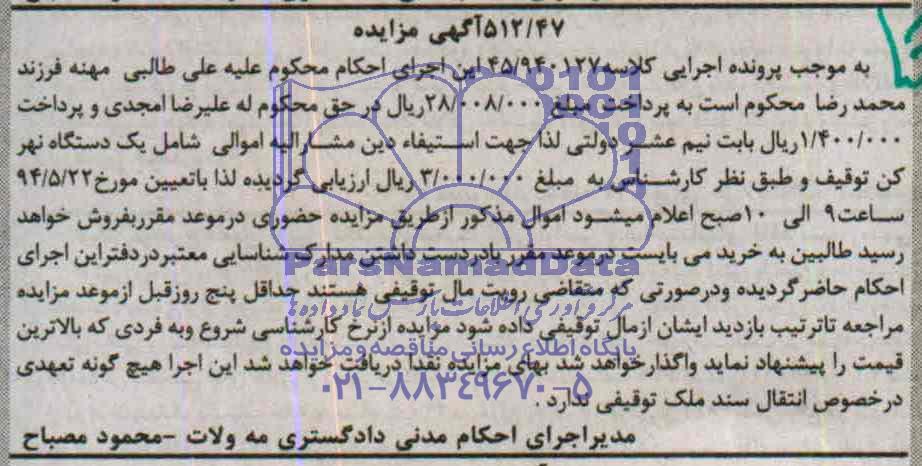 ۵۱۲/۴۷آگهی مزایده
به موجب پرونده اجرایی کلاسه۴۵/۹۴۰۱۲۷ این اجرای احکام محکوم علیه علی طالبی مهنه فرزند
محمد رضا محکوم است به پرداخت مبلغ ۲۸/۰۰۸/۰۰۰ریال در حق محکوم له علیرضا امجدی و پرداخت
۱/۴۰۰/۰۰۰ریال بابت نیم عشر دولتی لذا جهت استیفاء دین مشارالیه اموالی شامل یک دستگاه نهر
کن توقیف و طبق نظر کارشناس به مبلغ ۳/۰۰۰/۰۰۰ ریال ارزیابی گردیده لذا باتعیین مورخ۹۴/۵/۲۲
ساعت۹ الی ۱۰صبح اعلام میشود اموال مذکور ازطریق مزایده حضوری درموعد مقرربفروش خواهد
رسید طالبین به خرید می بایست درموعد مقرر بادردست داشتن مدارک شناسایی معتبردردفتراین اجرای
احکام حاضرگردیده ودرصورتی که متقاضی رویت مال توقیفی هستند حداقل پنج روزقبل ازموعد مزایده
مراجعه تاترتیب بازدید ایشان ازمال توقیفی داده شود مزایده ازنرخ کارشناسی شروع وبه فردی که بالاترین
قیمت را پیشنهاد نماید واگذارخواهد شد بهای مزایده نقدا دریافت خواهد شد این اجرا هیچ گونه تعهدی
درخصوص انتقال سند ملک توقیفی ندارد .
مدیراجرای احکام مدنی دادگستری مه ولات -محمود مصباح
ParsNamadData
مرکز فرآوری اطلاعات پارس نماد داده ها
پایگاه اطلاع رسانی مناقصه و مزایده
۰۲۱-۸۸۳۴۹۶۷۰-۵